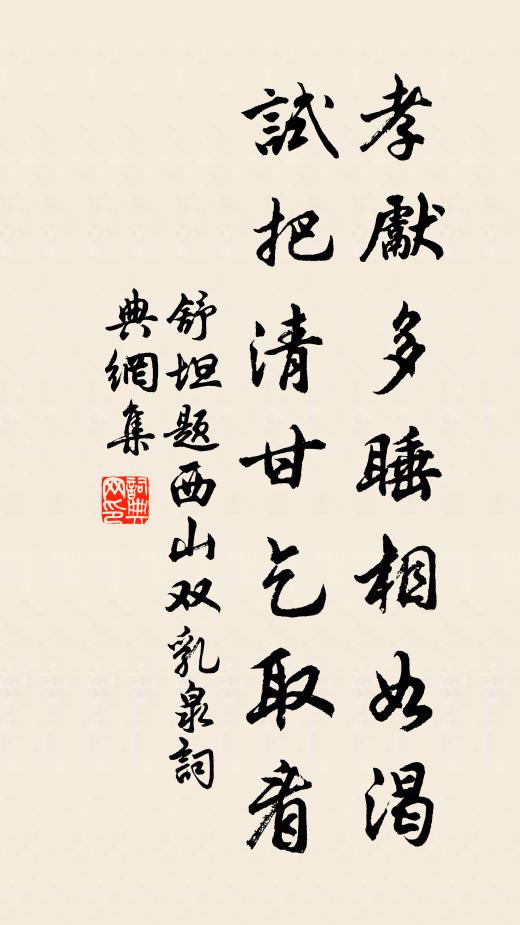 孝獻多睡相如渴
試把清甘乞取看
舒坦題西山双乳泉詞
典網集
詞典網印